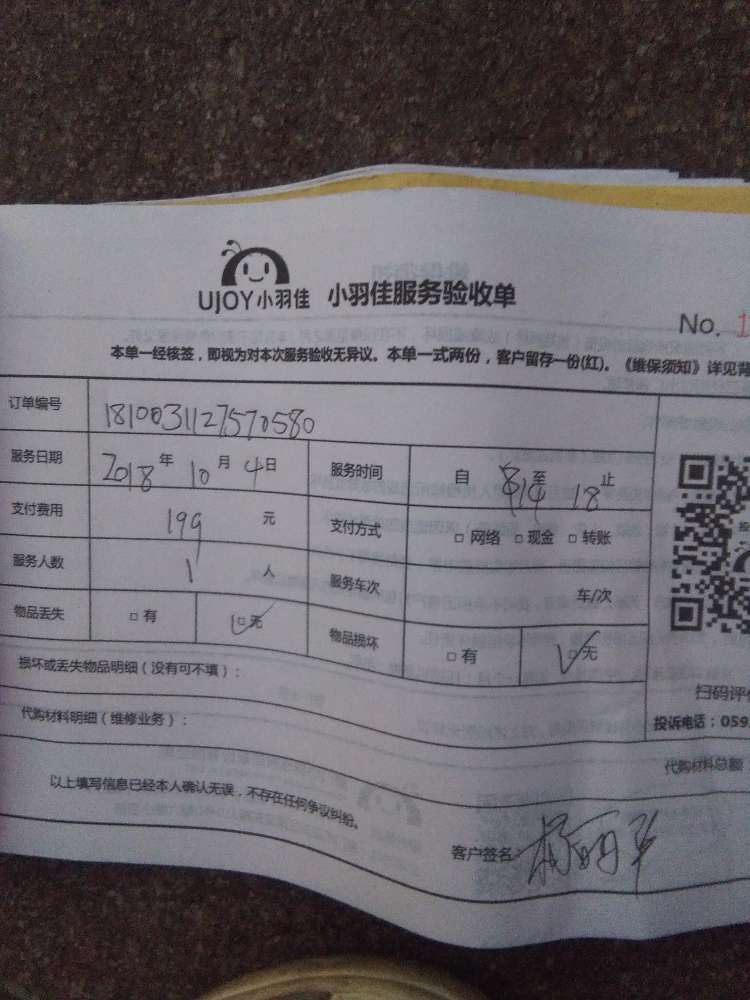 UJOY小羽佳 小羽佳服务验收单
No. 1
本单一经核签，即视为对本次服务验收无异议。本单一式两份，客户留存一份(红)。《维保须知》详见背
订单编号 1810031127570580
服务日期 2018年10月4日 服务时间 自 14 至 18 止
支付费用 199 元 支付方式 □网络 □现金 □转账
服务人数 1 人 服务车次 车/次
物品丢失 □有 □无 物品损坏 □有 □无
损坏或丢失物品明细（没有可不填）：
扫码评价
代购材料明细（维修业务）：
投诉电话：059
代购材料总额
以上填写信息已经本人确认无误，不存在任何争议纠纷。
客户签名